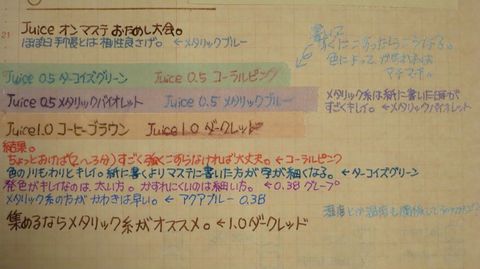 21
Juice オンマステ おためし大会。
ほぼ日手帳とは相性良さげ。←メタリックブルー
すぐにこすったらこうなる。
色によって、かすれ具合は
マチマチ。
Juice 0.5 ターコイズグリーン Juice 0.5 コーラルピンク
Juice 0.5 メタリックバイオレット Juice 0.5 メタリックブルー
メタリック系は紙に書いた時が
すごくキレイ。←メタリックバイオレット
Juice 1.0 コーヒーブラウン Juice 1.0 ダークレッド
結果。
ちょっとおけば(2〜3分)すごく強くこすらなければ大丈夫。←コーラルピンク
色のノリもわりとキレイ。紙に書くよりマステに書いた方が字が細くなる。←ターコイズグリーン
発色がキレイなのは太い方。かすれにくいのは細い方。←0.38 グレープ
メタリック系の方がかわきは早い。←アクアブルー 0.38
集めるならメタリック系がオススメ。←1.0 ダークレッド
湿度とか温度も関係して